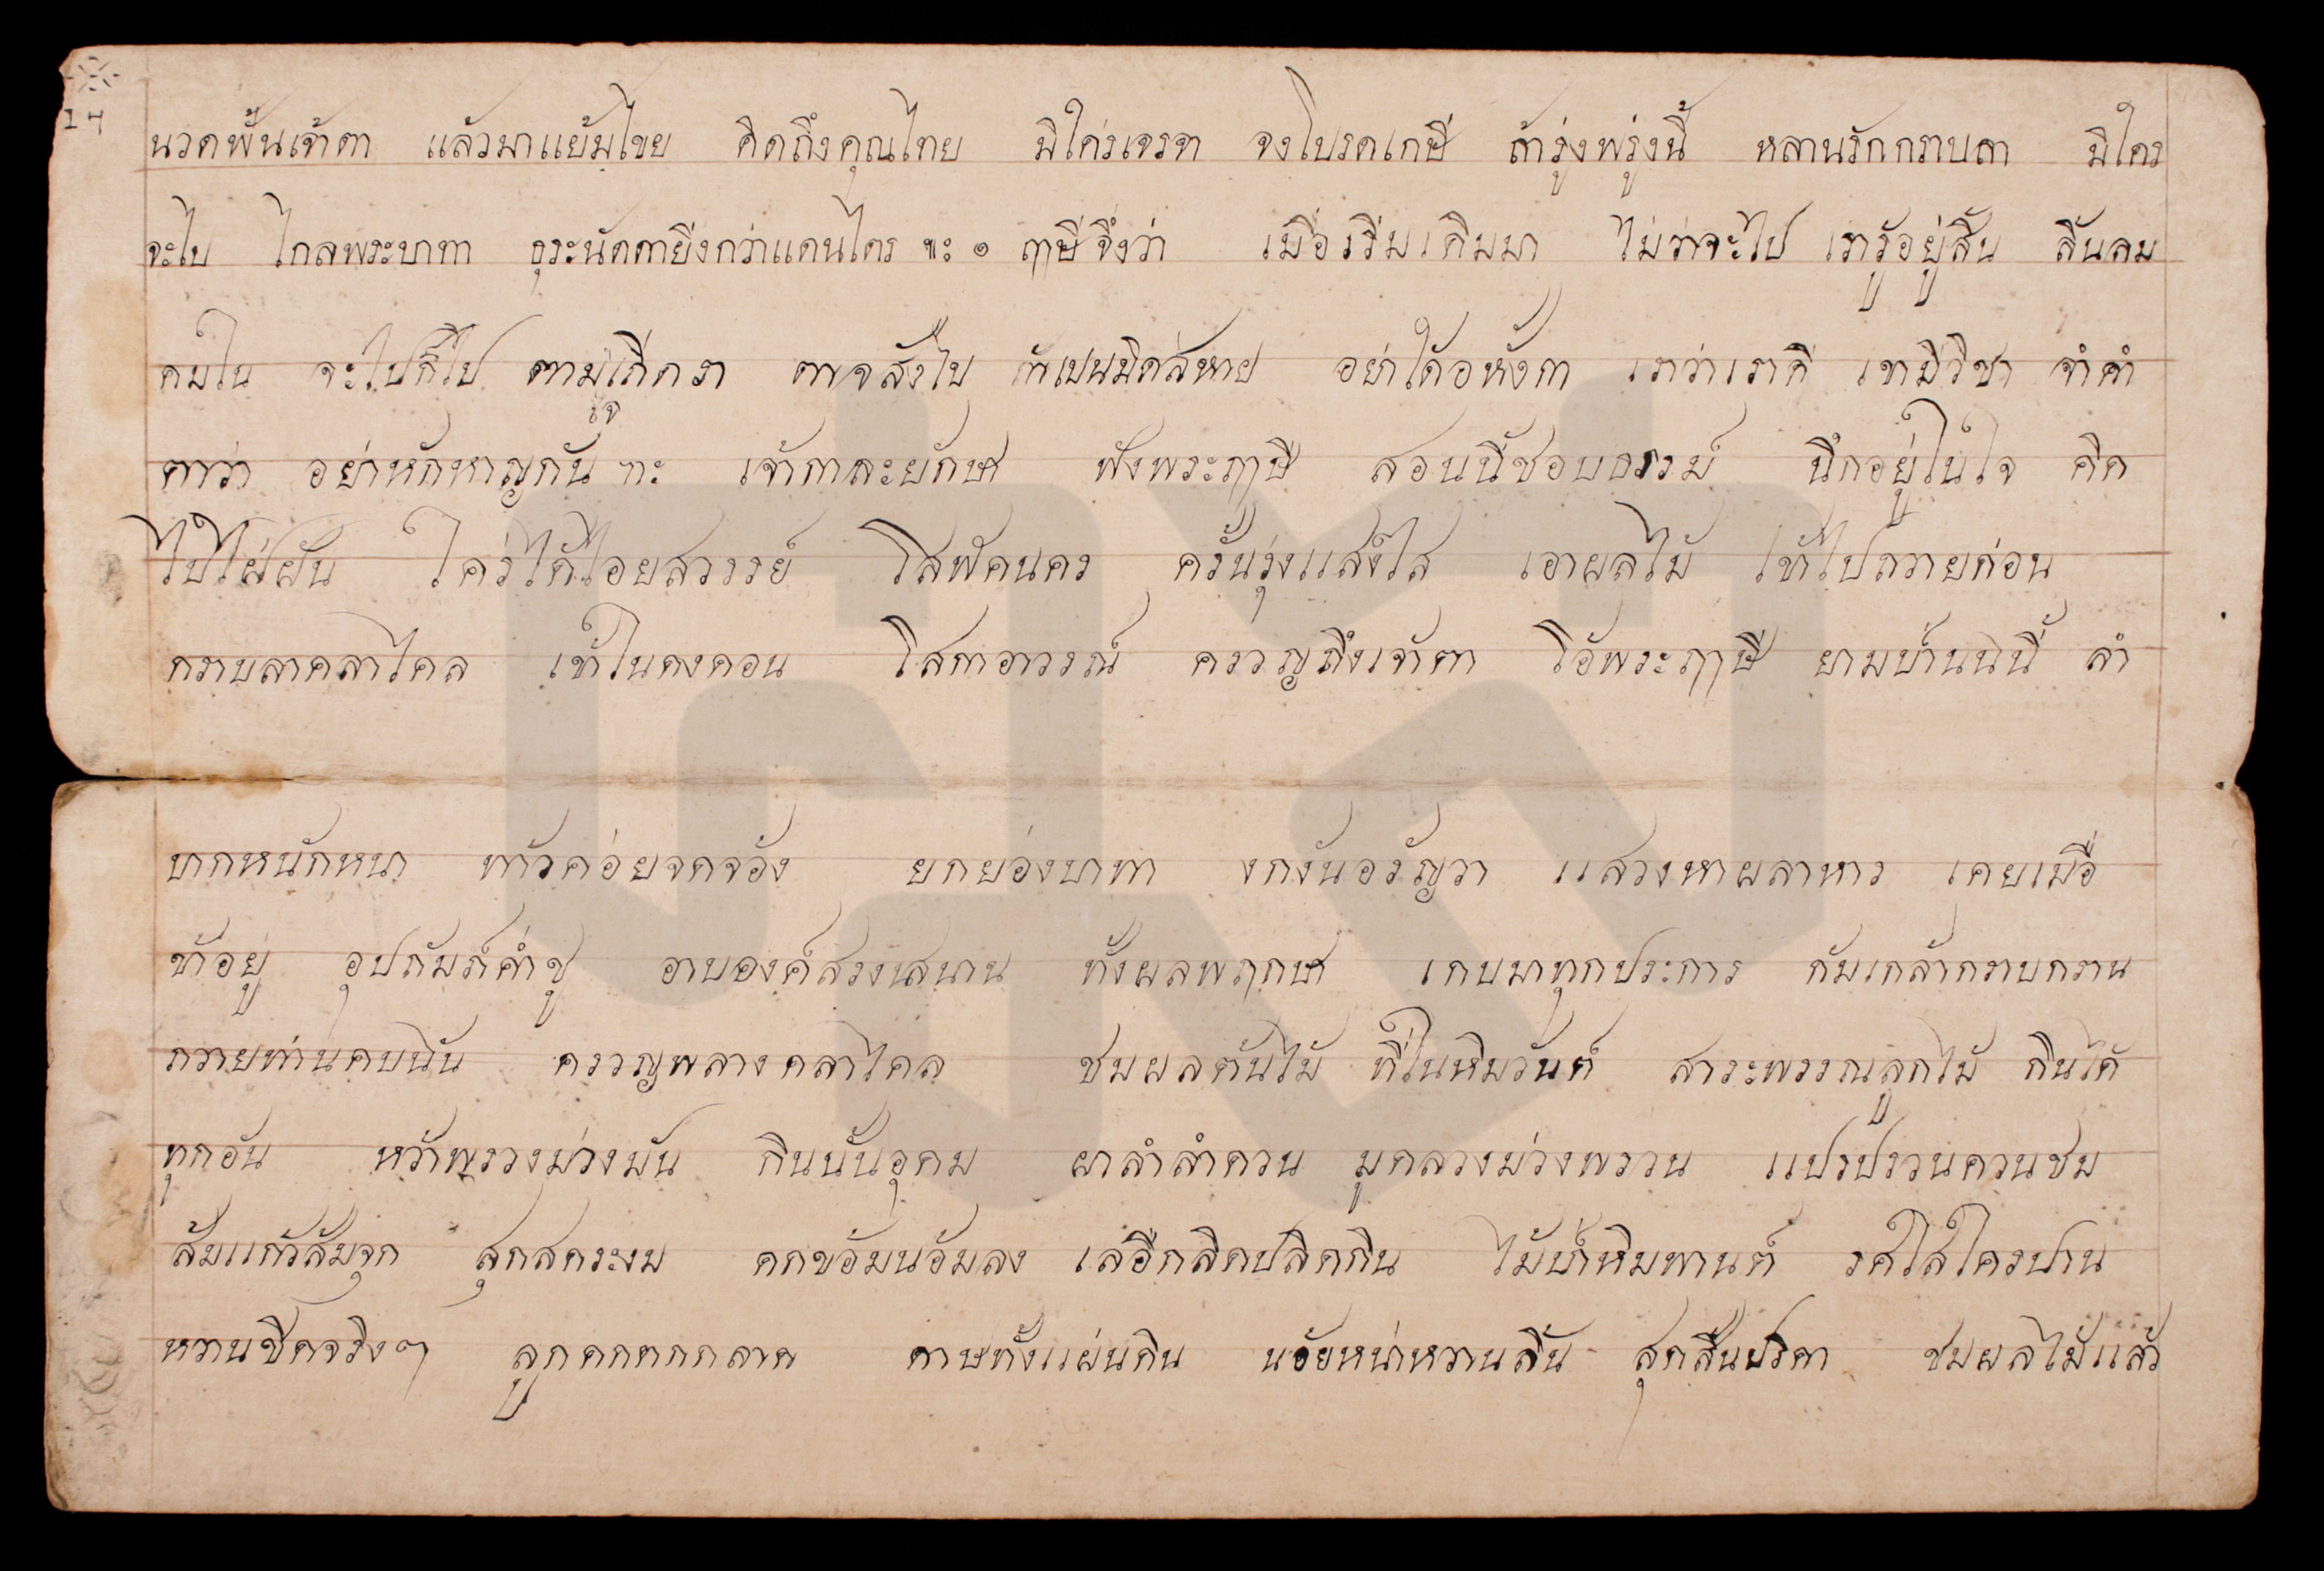 14
นวดพั้นเจ้าตา แล้วมาแย้มไขย คิดถึงคุณไทย มิใค่รเจรจา จงโปรดเกษี ถ้ารุ่งพรุ่งนี้ หลานรักกราบลา มิใคร
จะไป ไกลพระบาทา ธุระนัดดายิ่งกว่าแดนไตร ฯะ ๑ ฤๅษีจึ่งว่า เมื่อเริ่มเดิมมา ไม่ว่าจะไป เรารู้อยู่สิ้น สิ้นลม
คมใน จะไปก็ไป ตามเถิดรา ตาจสั่งไป เปนมิตสหาย อย่าได้อหังกา เราว่าเราดี เขามีวิชา จำคำ
ใจ
ตาว่า อย่าหักหาญกัน ฯะ เจ้ากาละยักษ ฟังพระฤๅษี สอนนี้ชอบธรรม์ นึกอยู่ไน่ใจ คิด
ไปไฝ่ฝัน ใคร่ได้ไอยสวรรย์ โสฬัดนคร ครั้นรุ่งแสงใส เอาผลไม้ เข้าไปถวายก่อน
กราบลาคลาไคล เข้าในดงดอน โสกาอาวรณ์ ครวญถึงเจ้าตา โอ้พระฤๅษี ยามป่านนี้นี้ ลำ
บากหนักหนา ท้าวค่อยจดจ้อง ยกย่องบาทา งกงันอรัญวา แสวงหาผลาหาร เคยเมื่อ
ข้าอยู่ อุปถัมภ์ค้ำชู อาบองค์สรงสนาน ทั้งผลพฤกษา เกบมาทุกประการ ก้มเกล้ากราบกราน
ถวายท่านคบนัน ครวญพลางคลาไคล ชมผลต้นไม้ ที่ในหิมวันต์ สาระพรรณลูกไม้ กินได้
ทุกอัน หว้าพรวงม่วงมัน กินนั้นอุดม ผาลำลำดวน มูดลวงม่วงพรวน แปรปรวนควนชม
ส้มแก้วส้มจุก สุกสคระงม ดกข้อมน้อมลง เลือกลิดปลิดกิน ไม้ป่าหิมพานต์ รศใสใครปาน
หวานชืดจริงๆ ลูกดกตกกลาด ดาษทั้งแผ่นดิน น้อยหน่าหวานลิ้น สุกสิ้นปริตา ชมผลไม้แล้ว